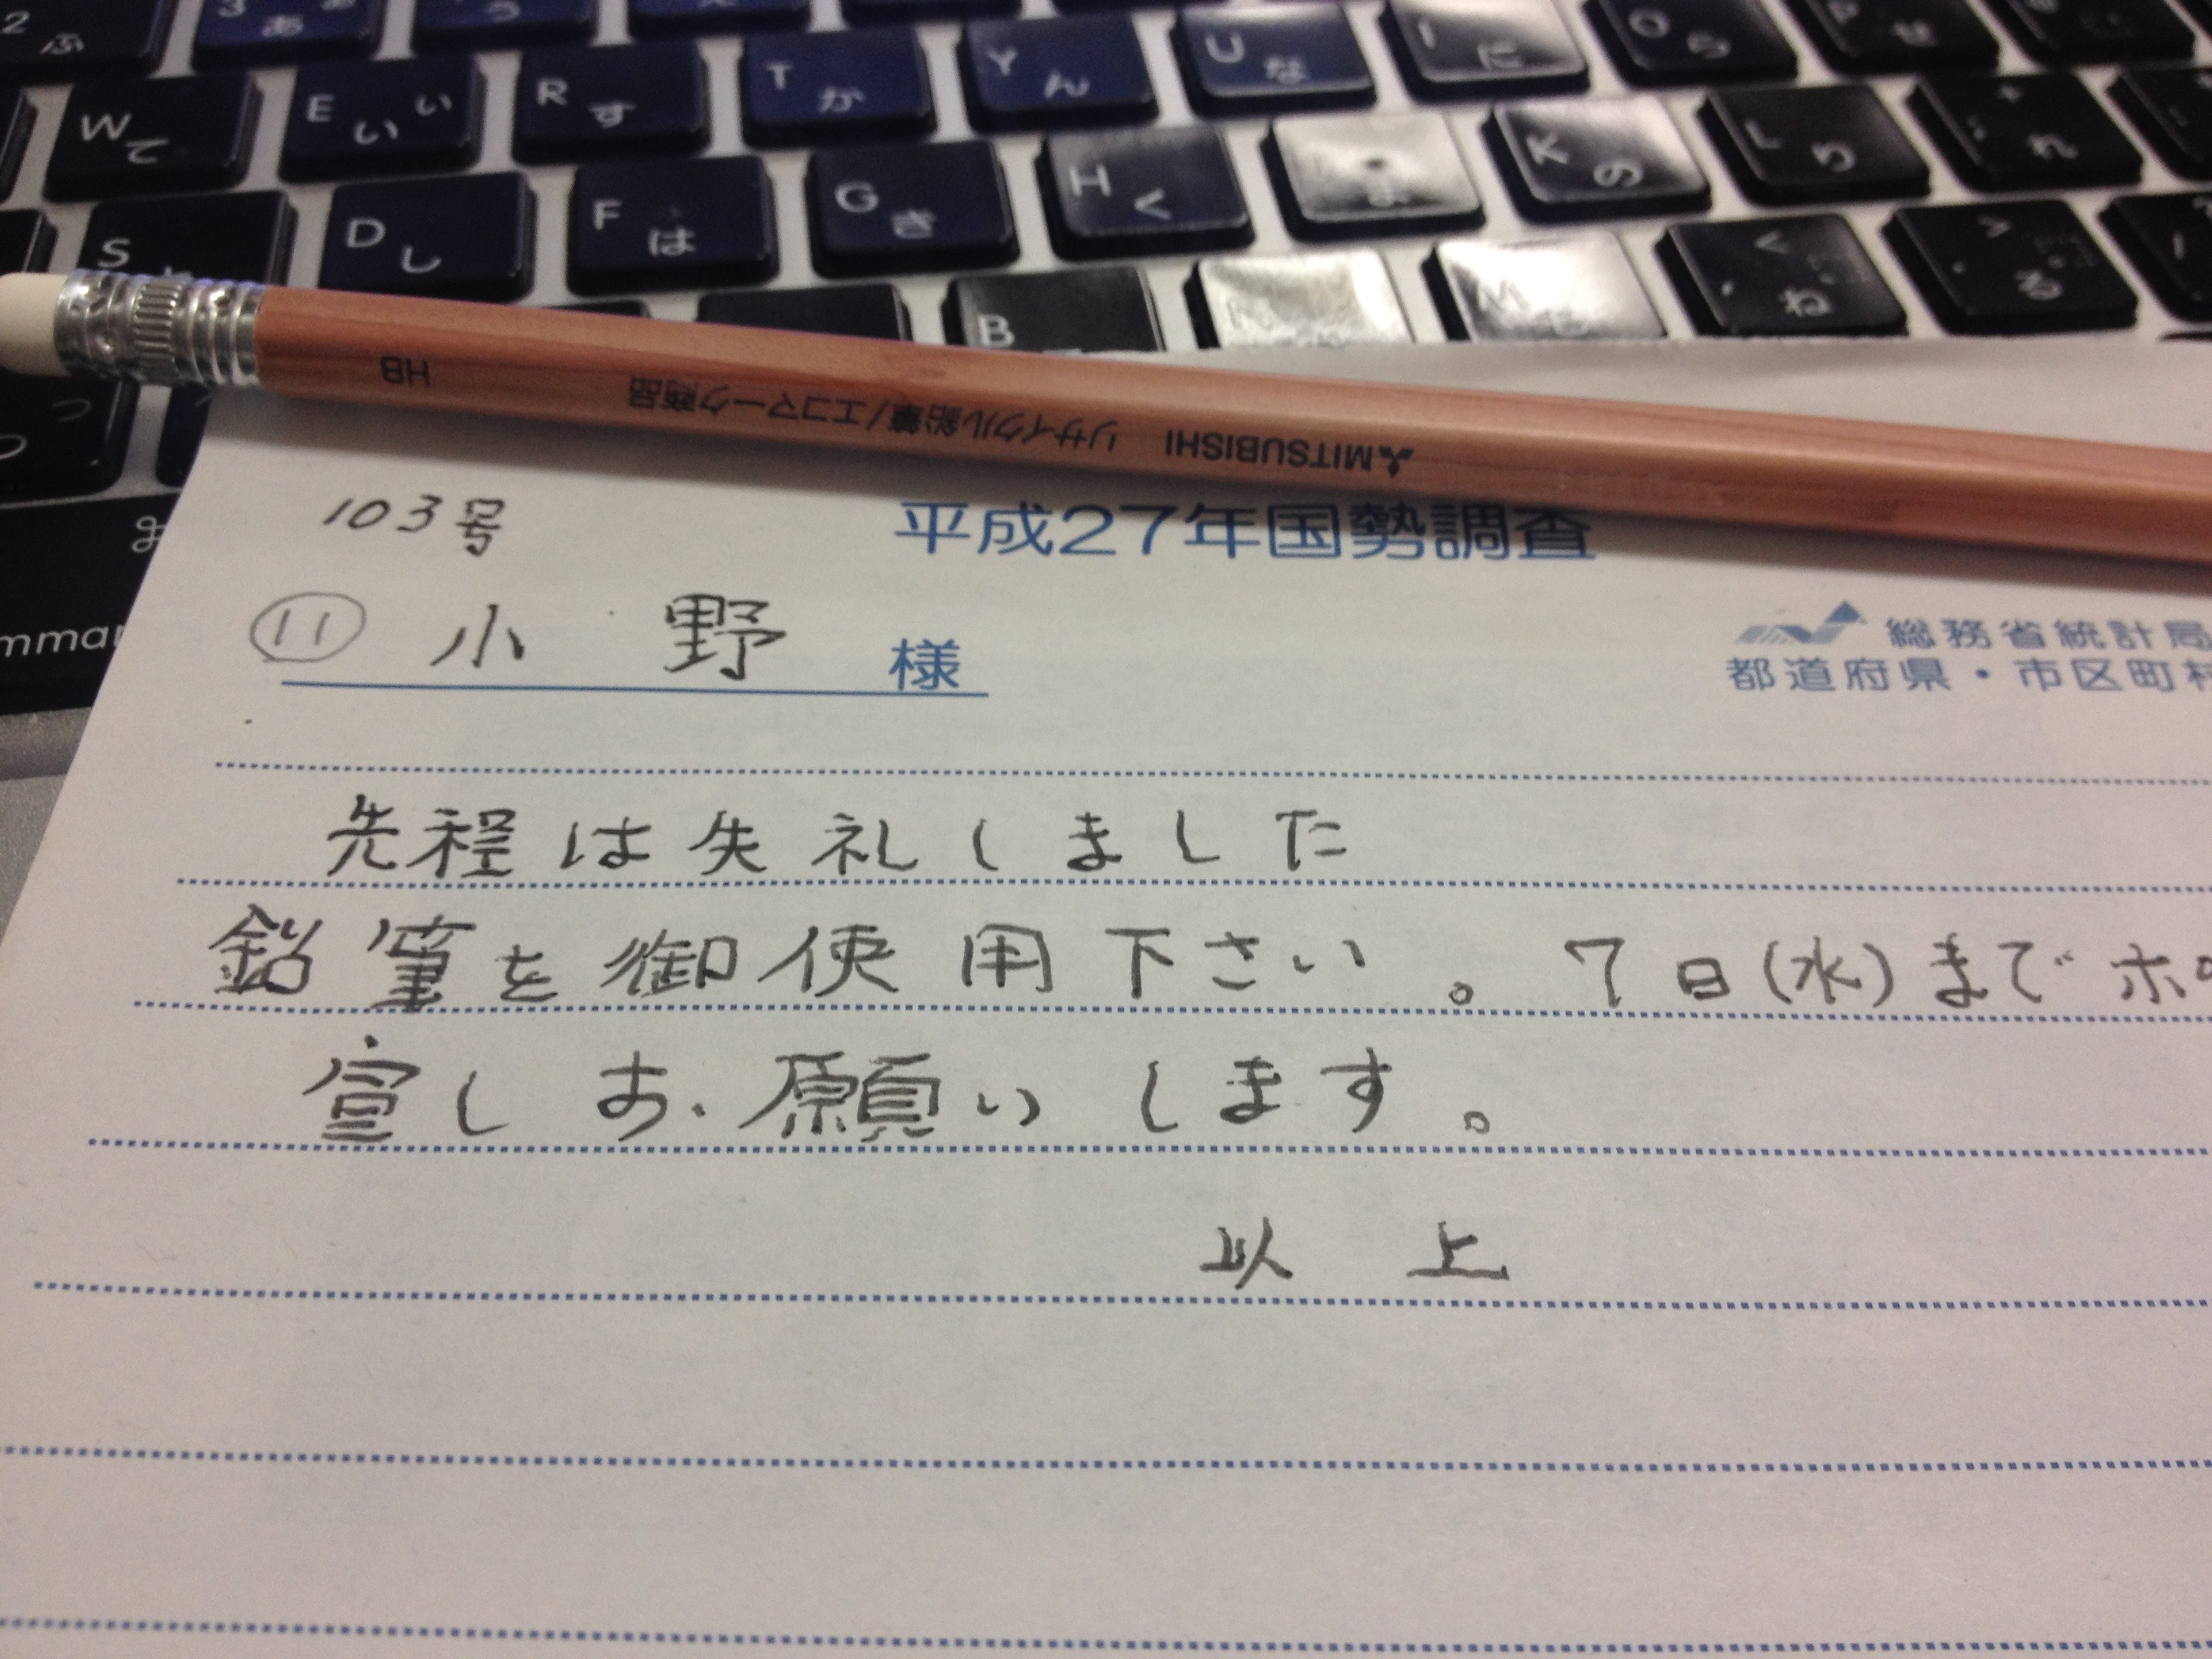 2 ふ
3 あ ぁ
W て
E い ぃ
R す
T か
Y ん
U な
I に
O ら
S
D し
F は
G き
H く
K の
L り
B
N
M も
< 、 ね
> 。 る
HB
リサイクル鉛筆/エコマーク商品
MITSUBISHI
103号
平成27年国勢調査
⑪ 小 野 様
総務省統計局
都道府県・市区町村
先程は失礼しました
鉛筆を御使用下さい。7日(水)までポ
宣しお願いします。
以 上